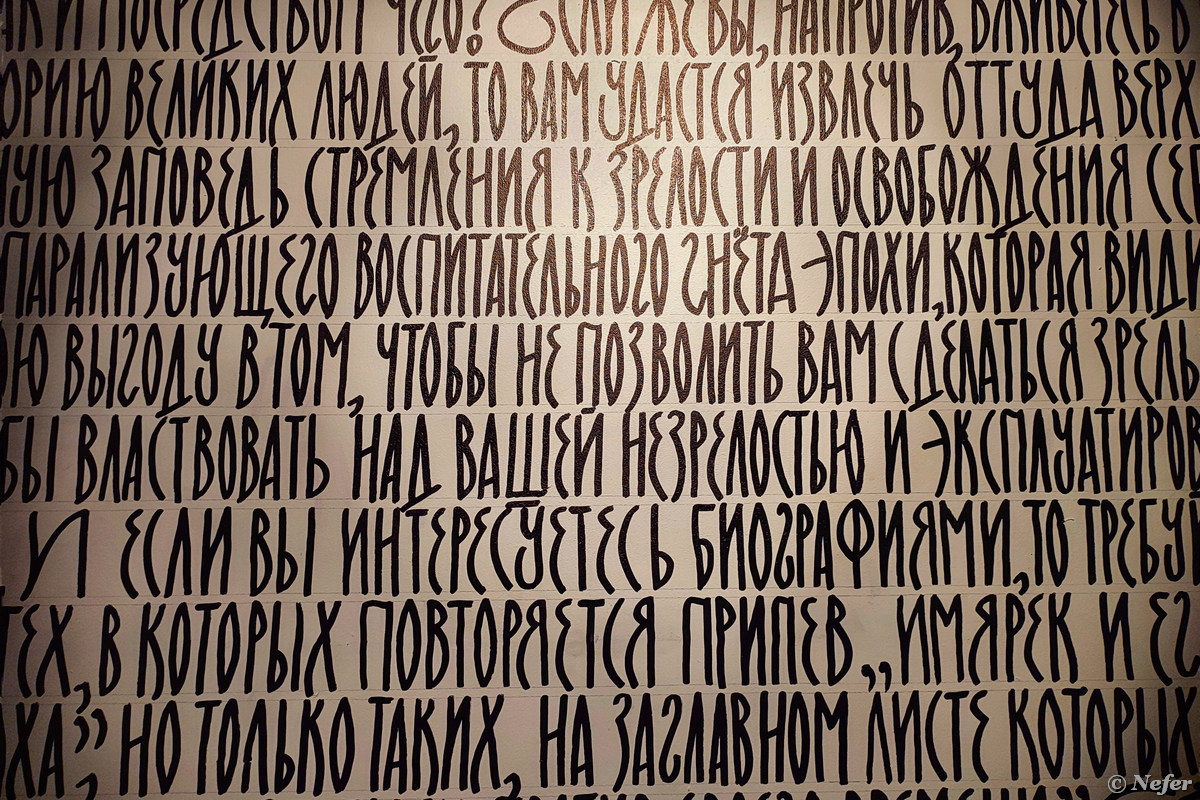 И ПОСРЕДСТВОМ ЧЕГО? ЕСЛИ ЖЕ ВЫ, НАПРОТИВ, ВЖИВЕТЕСЬ В
ОРИЮ ВЕЛИКИХ ЛЮДЕЙ, ТО ВАМ УДАСТСЯ ИЗВЛЕЧЬ ОТТУДА ВЕРХ
НУЮ ЗАПОВЕДЬ СТРЕМЛЕНИЯ К ЗРЕЛОСТИ И ОСВОБОЖДЕНИЯ СЕБ
ПАРАЛИЗУЮЩЕГО ВОСПИТАТЕЛЬНОГО ГНЁТА ЭПОХИ, КОТОРАЯ ВИДИ
ОЮ ВЫГОДУ В ТОМ, ЧТОБЫ НЕ ПОЗВОЛИТЬ ВАМ СДЕЛАТЬСЯ ЗРЕЛЫ
БЫ ВЛАСТВОВАТЬ НАД ВАШЕЙ НЕЗРЕЛОСТЬЮ И ЭКСПЛУАТИРОВ
И ЕСЛИ ВЫ ИНТЕРЕСУЕТЕСЬ БИОГРАФИЯМИ, ТО ТРЕБУЙ
ТЕХ, В КОТОРЫХ ПОВТОРЯЕТСЯ ПРИПЕВ „ИМЯРЕК И ЕГ
ХА”, НО ТОЛЬКО ТАКИХ, НА ЗАГЛАВНОМ ЛИСТЕ КОТОРЫХ
© Nefer